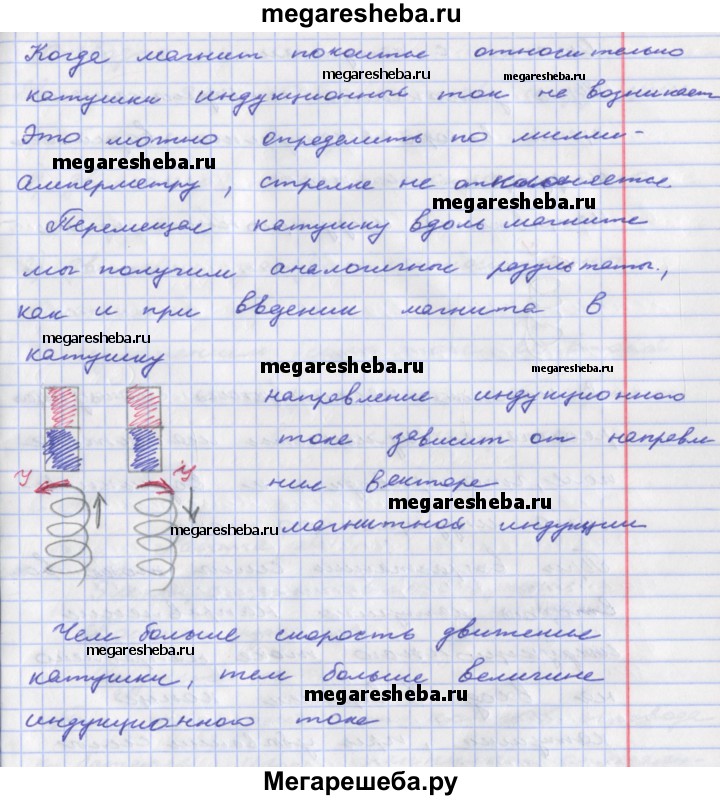 megaresheba.ru
Когда магнит покоится относительно
megaresheba.ru megaresheba.ru
катушки индукционный ток не возникает
Это можно определить по милли-
megaresheba.ru
Амперметру, стрелка не отклоняется.
megaresheba.ru
Перемещая катушку вдоль магнита
мы получим аналогичные результаты,
как и при введении магнита в
megaresheba.ru
катушку
megaresheba.ru megaresheba.ru
направление индукционного
тока зависит от направле
ния вектора
megaresheba.ru
магнитной индукции
megaresheba.ru
У У
Чем больше скорость движения
megaresheba.ru
катушки, тем больше величина
megaresheba.ru
индукционного тока
Мегарешеба.ру